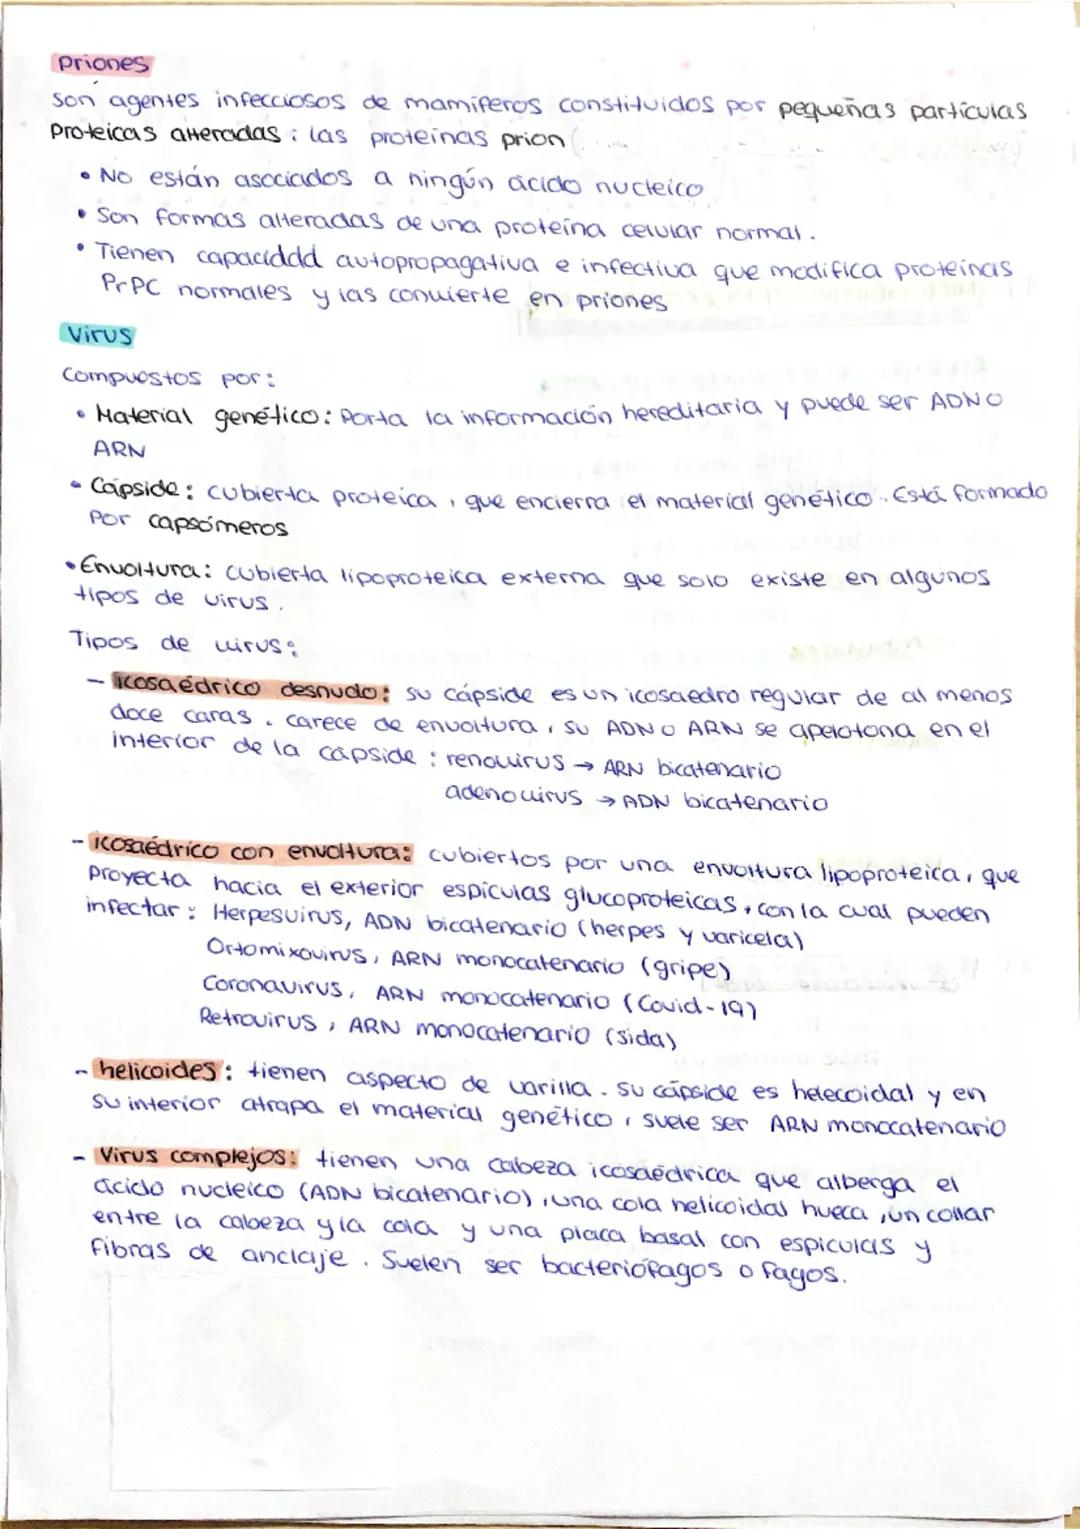 Priones
Son agentes infecciosos de mamíferos constituidos por pequeñas partículas
Proteicas alteradas : las proteínas prion
• No están asociados a ningún ácido nucleico
• Son formas alteradas de una proteína celular normal.
• Tienen capacidad autopropagativa e infectiva que modifica proteínas
PrPC normales y las convierte en priones
Virus
Compuestos por:
• Material genético: Porta la información hereditaria y puede ser ADN o
ARN
• Cápside: cubierta proteica, que encierra el material genético. Está formado
Por capsómeros
• Envoltura: cubierta lipoproteica externa que solo existe en algunos
tipos de virus.
Tipos de virus:
- icosaédrico desnudo: su cápside es un icosaedro regular de al menos
doce caras. carece de envoltura, su ADN o ARN se apelotona en el
interior de la cápside : renovirus → ARN bicatenario
adenovirus → ADN bicatenario
- icosaédrico con envoltura: cubiertos por una envoltura lipoproteica, que
Proyecta hacia el exterior espículas glucoproteicas, con la cual pueden
infectar : Herpesvirus, ADN bicatenario (herpes y varicela)
Ortomixovirus, ARN monocatenario (gripe)
Coronavirus, ARN monocatenario (Covid-19)
Retrovirus, ARN monocatenario (sida)
- helicoides: tienen aspecto de varilla. su cápside es helecoidal y en
su interior atrapa el material genético, suele ser ARN monocatenario
- Virus complejos: tienen una cabeza icosaédrica que alberga el
ácido nucleico (ADN bicatenario), una cola helicoidal hueca, un collar
entre la cabeza y la cola y una placa basal con espículas y
fibras de anclaje. Suelen ser bacteriófagos o fagos.